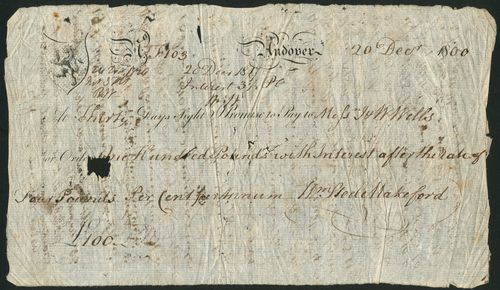 No. F103 Andover 20 Decr. 1800
20 Dec 18
Interest 3
At Thirty Days Sight I Promise to Pay to Messrs J & W Wells
or Order One Hundred Pounds with Interest after the rate of
Four Pounds Per Cent per Annum Wm Steele Wakeford
£100